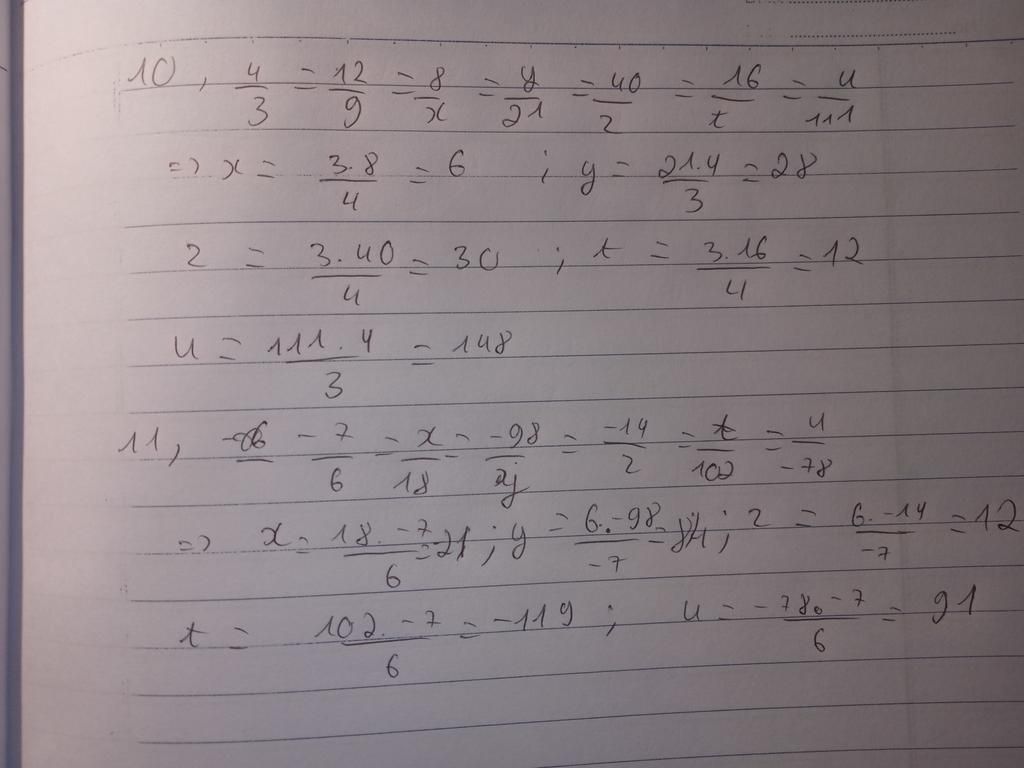 10, 4/3 = 12/9 = 8/x = y/21 = 40/z = 16/t = u/111
=> x = 3.8/4 = 6 ; y = 21.4/3 = 28
z = 3.40/4 = 30 ; t = 3.16/4 = 12
u = 111.4/3 = 148
11, -7/6 = x/18 = -98/y = -14/z = t/102 = u/-78
=> x = 18.-7/6 = -21 ; y = 6.-98/-7 = 84 ; z = 6.-14/-7 = 12
t = 102.-7/6 = -119 ; u = -78.-7/6 = 91